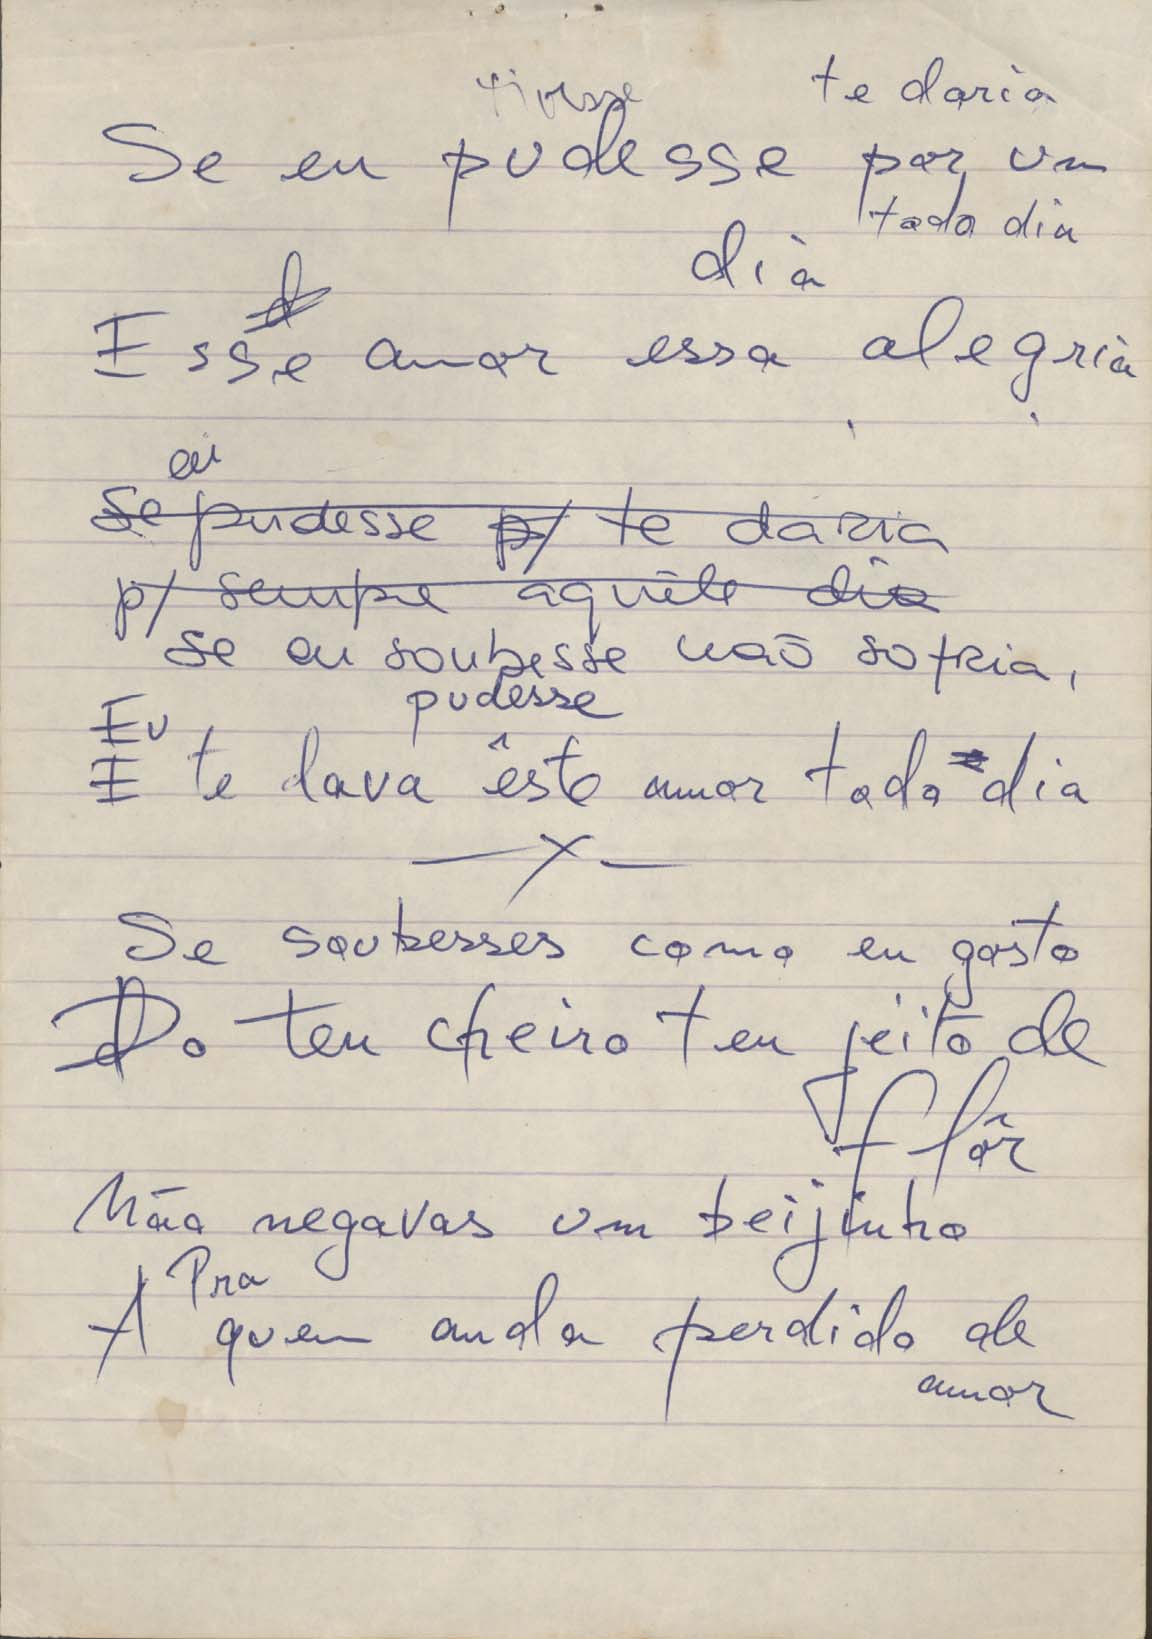 tivesse te daria
Se eu pudesse por um
todo dia
dia
Esse amor essa alegria
eu
Se pudesse p/ te daria
p/ sempre aquêle dia
se eu soubesse não sofria,
pudesse
Eu
E te dava êste amor todo dia
—x—
Se soubesses como eu gosto
Do teu cheiro teu jeito de
flôr
Não negavas um beijinho
Pra
A quem anda perdido de
amor